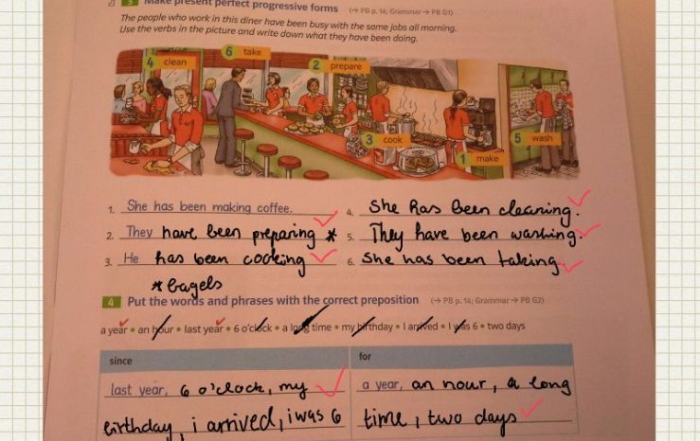 3 Make present perfect progressive forms (→ PB p. 14; Grammar → PB G1)
The people who work in this diner have been busy with the same jobs all morning.
Use the verbs in the picture and write down what they have been doing.
6 take
4 clean
2 prepare
3 cook
5 wash
1 make
1. She has been making coffee.
4. She has been cleaning.
2. They have been preparing *
5. They have been washing.
3. He has been cooking
6. She has been taking
* bagels
4 Put the words and phrases with the correct preposition (→ PB p. 14; Grammar → PB G2)
a year • an hour • last year • 6 o'clock • a long time • my birthday • I arrived • I was 6 • two days
since
for
last year, 6 o'clock, my
a year, an hour, a long
birthday, i arrived, i was 6
time, two days